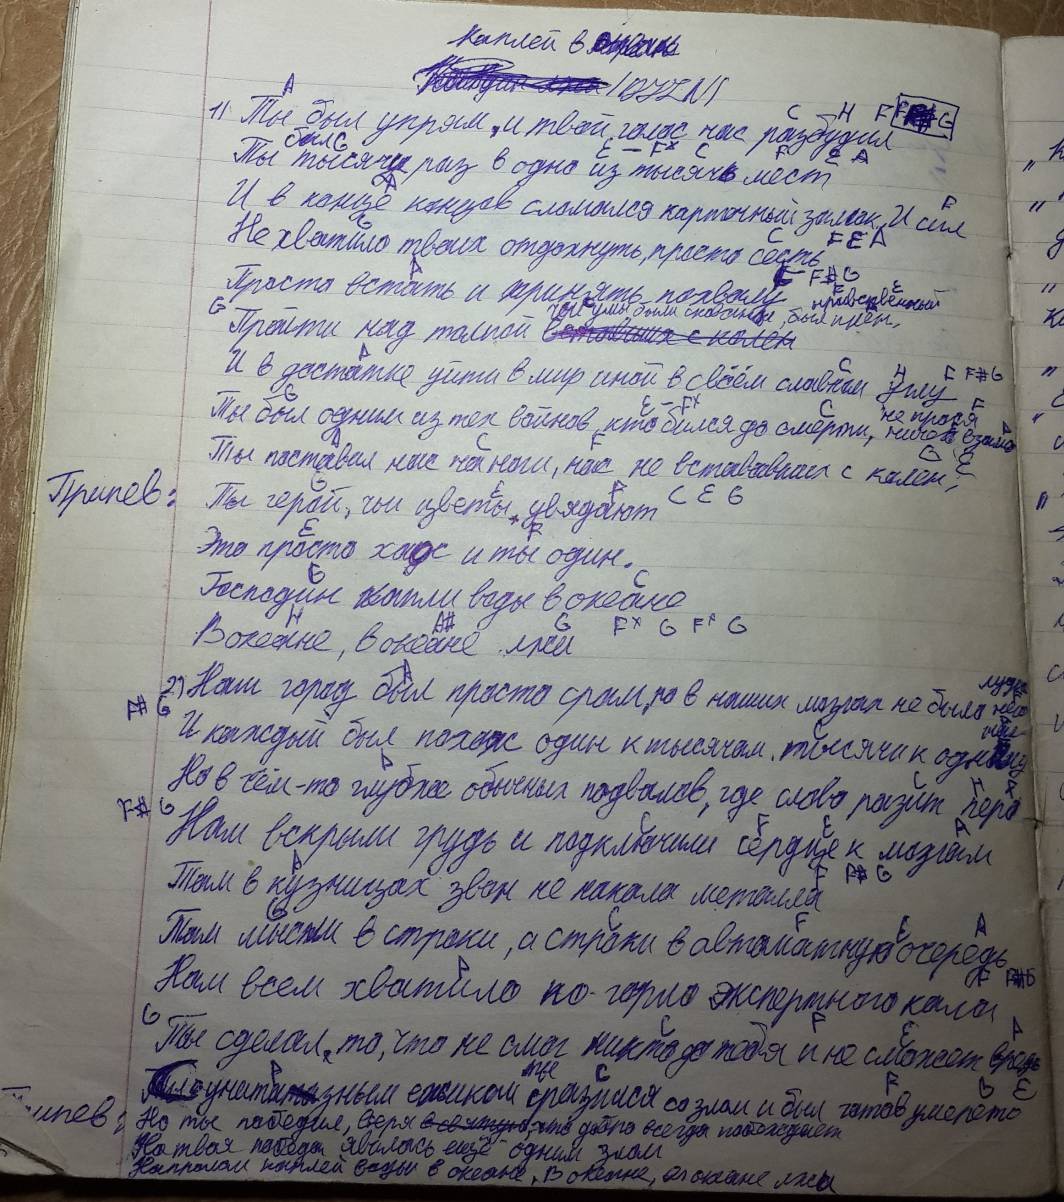 Каплей в океан
A C H F F# G
1) Ты был упрям, и твой голос нас разбудил
был G E - F* C F E A
Ты тысячу раз в одно из тысяч мест
A F
И в конце концов сломался карточный замок, И сил
G C F E A
Не хватило твоих отдохнуть, просто сесть
A F# G
Просто встать и принять похвалу
G нравственный
Пройти над толпой чьи умы были был плен,
A C H F F# G
И в достатке уйти в мир иной в своём славном углу
G E - F* C F A
Ты был одним из тех воинов, кто бился до смерти, не прося взамен
A C F G E
Ты поставил нас на ноги, нас не встававших с колен,
Припев: G E A C E G
Ты герой, чьи цветы увядают
E F
Это просто хаос и ты один.
G C
Господин капли воды в океане
H A# G F* G F* G
В океане, в океане лжи
A
2) Наш город был просто срам, но в наших мозгах не было
G C
И каждый был похож один к тысячам, тысячи к одному
A C H F
Но в чём-то глубже обычных подвалов, где слово разит перо
G C F E A
Нам вскрыли грудь и подключили сердце к мозгам
A F F# G
Там в кузницах звон не накала металла
G C F E A
Там мысли в строки, а строки в автоматную очередь
A F F# G
Нам всем хватило по-горло экспертного кала
G C F E A
Ты сделал то, что не смог никто до тебя и не сможет впредь
A C F G E
сразился со злом и был готов умереть
Припев:
Но ты победил, веря что добро всегда побеждает
Но твоя победа явилась ещё одним злом
каплей воды в океане, В океане, в океане лжи